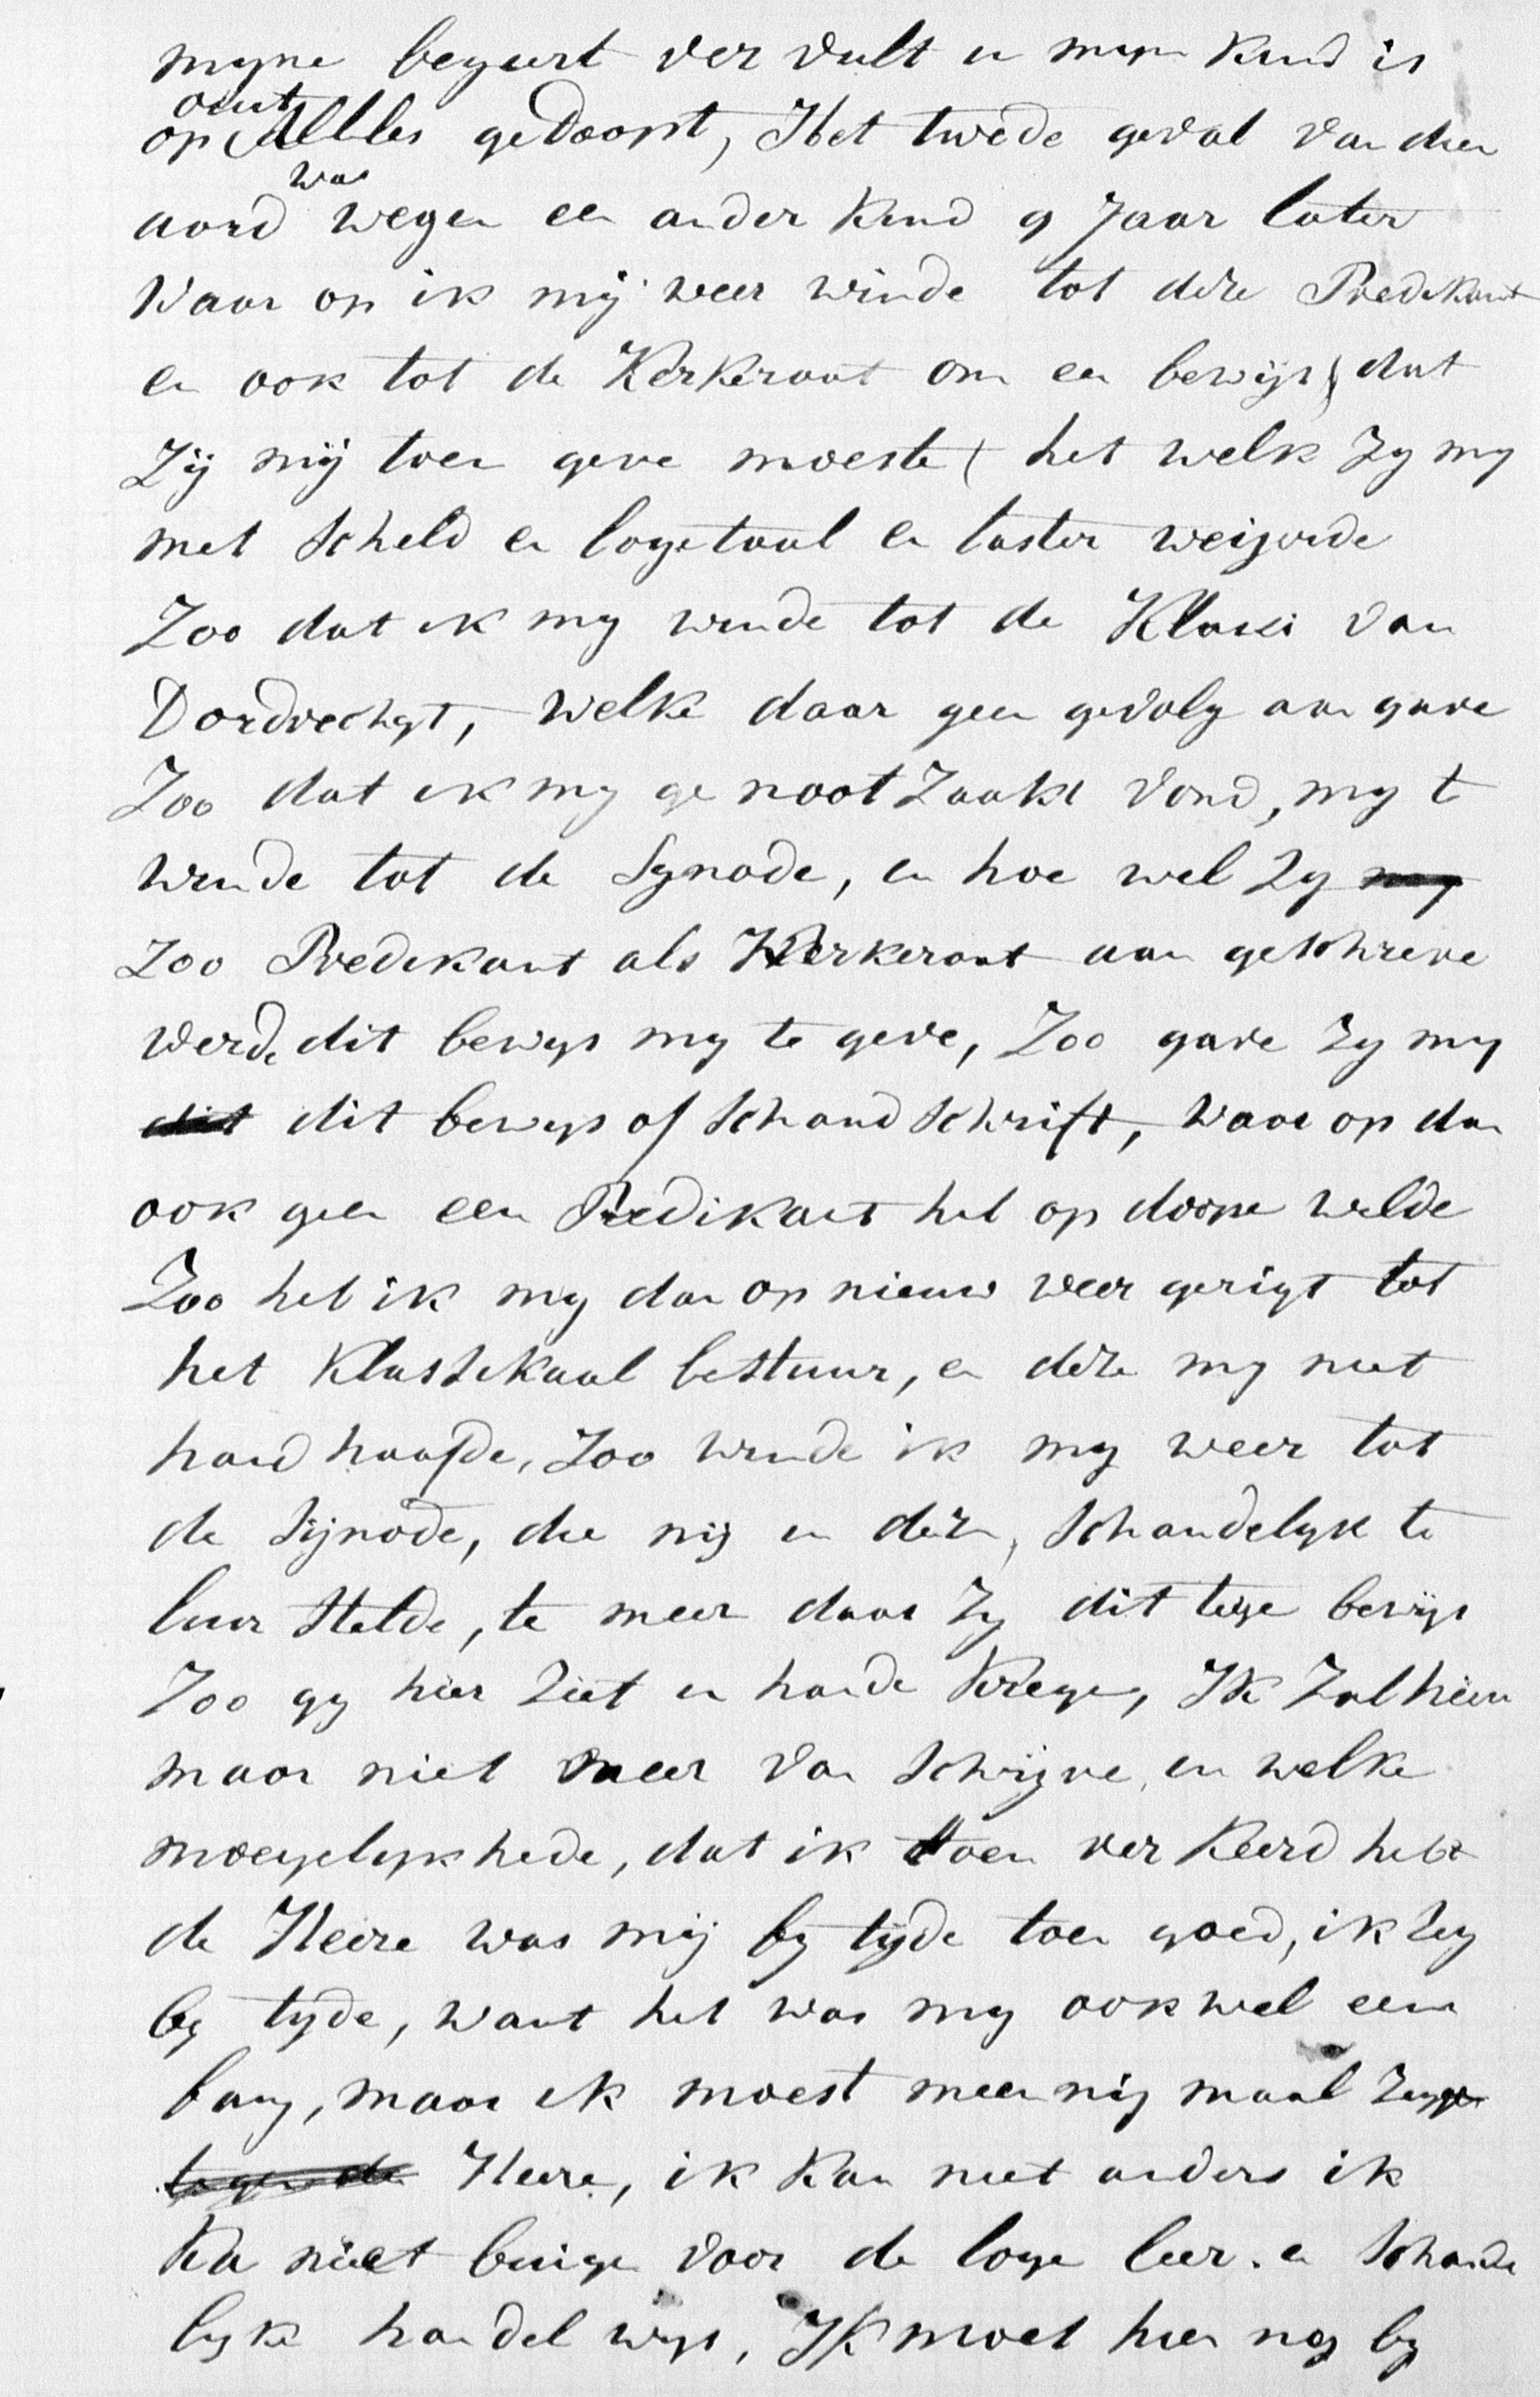 myne begeert ver vult en myn kind is
out
op Alblas gedoopt, Het twede geval van dien
was
aord wegen een ander kind 9 Jaar later
Waar op ik mij weer winde tot deze Predekant
en ook tot de Kerkeraat om een bewijs, dat
Zij mij toen geve moeste (het welk Zy my
met Scheld en logetaal en laster weigerde
Zoo dat ik my wende tot de Klassi van
Dordrechgt, welke daar geen gevolg aan gave
Zoo dat ik my ge noot Zaakt vond, my t
wende tot de Synode, en hoe wel Zy my
Zoo Predekant als Kerkeraat aan geschreve
werde dit bewys my te geve, Zoo gave Zy my
dit dit bewys of Schand Schrift, waar op dan
ook geen een Predikant het op doope wilde
Zoo heb ik my dan op nieuw weer gerigt tot
het Klassekaal bestuur, en deze my niet
hand haafde, Zoo wende ik my weer tot
de Sijnode, die mij in deze, Schandelyk te
leur Stelde, te meer daar Zy dit teige bewijs
Zoo gy hier Ziet in hande krege, Ik Zal hier
maar niet meer van Schrijve, in welke
moeyelykhede, dat ik toen ver keerd heb
de Heere was mij by tijde toen goed, ik Zeg
by tyde, want het was my ook wel eens
bang, maar ik moest meenig maal Zegge
tegen de Heere, ik kan niet anders ik
kan niet buige voor de loge leer. en Schande
lyke handel wys, Ik moet hier nog by